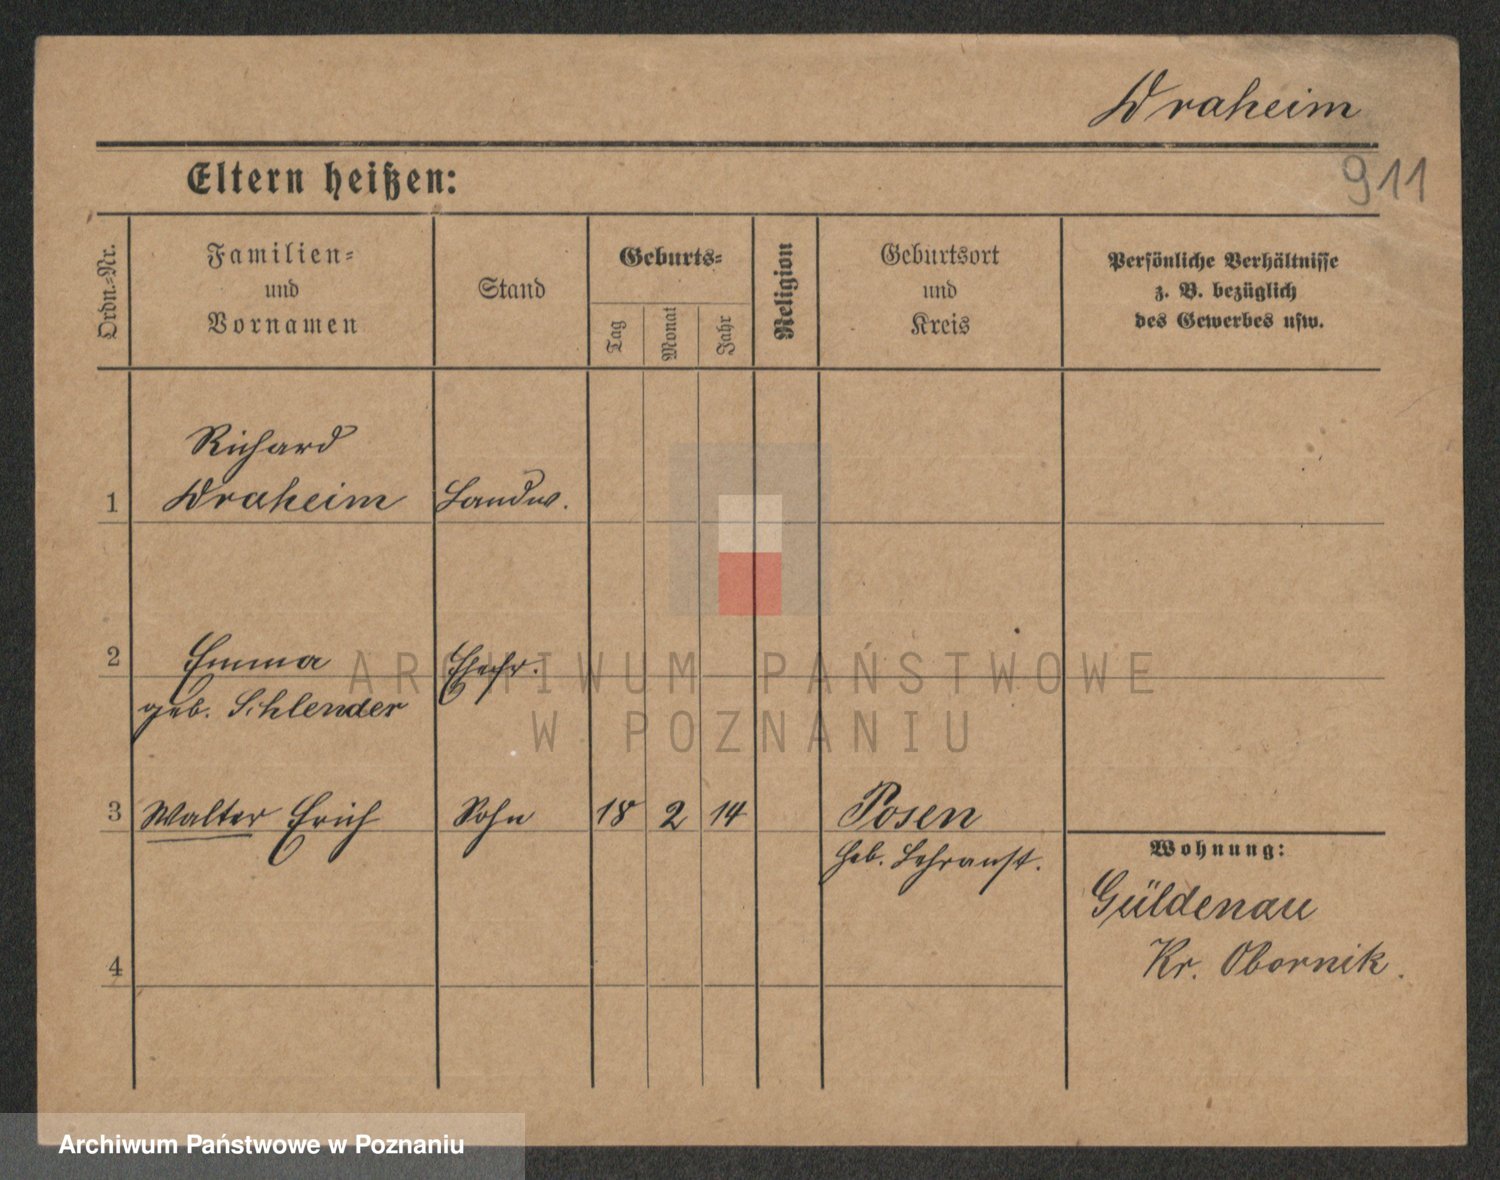 Draheim
911
Eltern heißen:
Ordn.-Nr.
Familien-
und
Vornamen
Stand
Geburts-
Tag
Monat
Jahr
Religion
Geburtsort
und
Kreis
Persönliche Verhältnisse
z. B. bezüglich
des Gewerbes usw.
Richard
1 Draheim Landw.
2 Emma Ehefr.
geb. Schlender
3 Walter Erich Sohn 18 2 14 Posen
Heb. Lehranst.
Wohnung:
Güldenau
Kr. Obornik.
4
ARCHIWUM PAŃSTWOWE
W POZNANIU
Archiwum Państwowe w Poznaniu